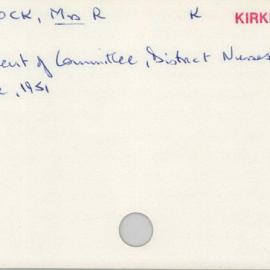 OCK, Mrs R K KIRK
ent of Committee, District Nurses
, 1951